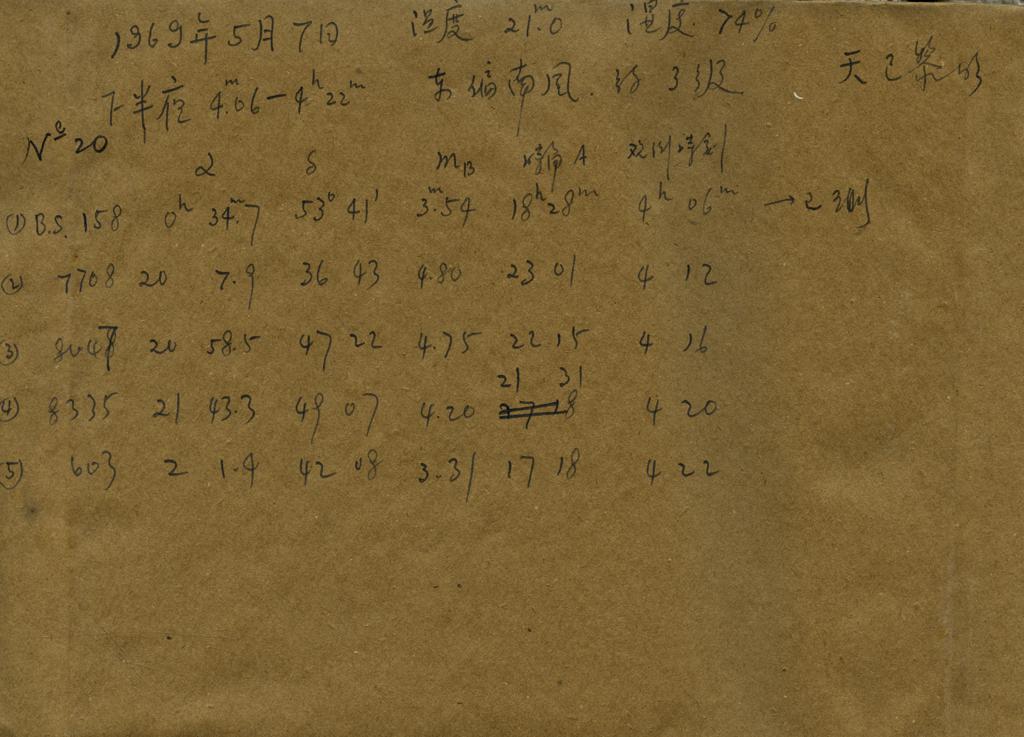 1969年5月7日 温度 21ᵐ.0 湿度 74%
下半夜 4ᵐ.06-4ʰ22ᵐ 东偏南风 约3级 天已黎明
Nº20
α δ mB 时角A 观测时刻
① B.S. 158 0ʰ 34ᵐ.7 53° 41' 3ᵐ.54 18ʰ28ᵐ 4ʰ 06ᵐ →已测
② 7708 20 7.9 36 43 4.80 23 01 4 12
③ 8047 20 58.5 47 22 4.75 22 15 4 16
21 31
④ 8335 21 43.3 49 07 4.20 4 20
⑤ 603 2 1.4 42 08 3.31 17 18 4 22